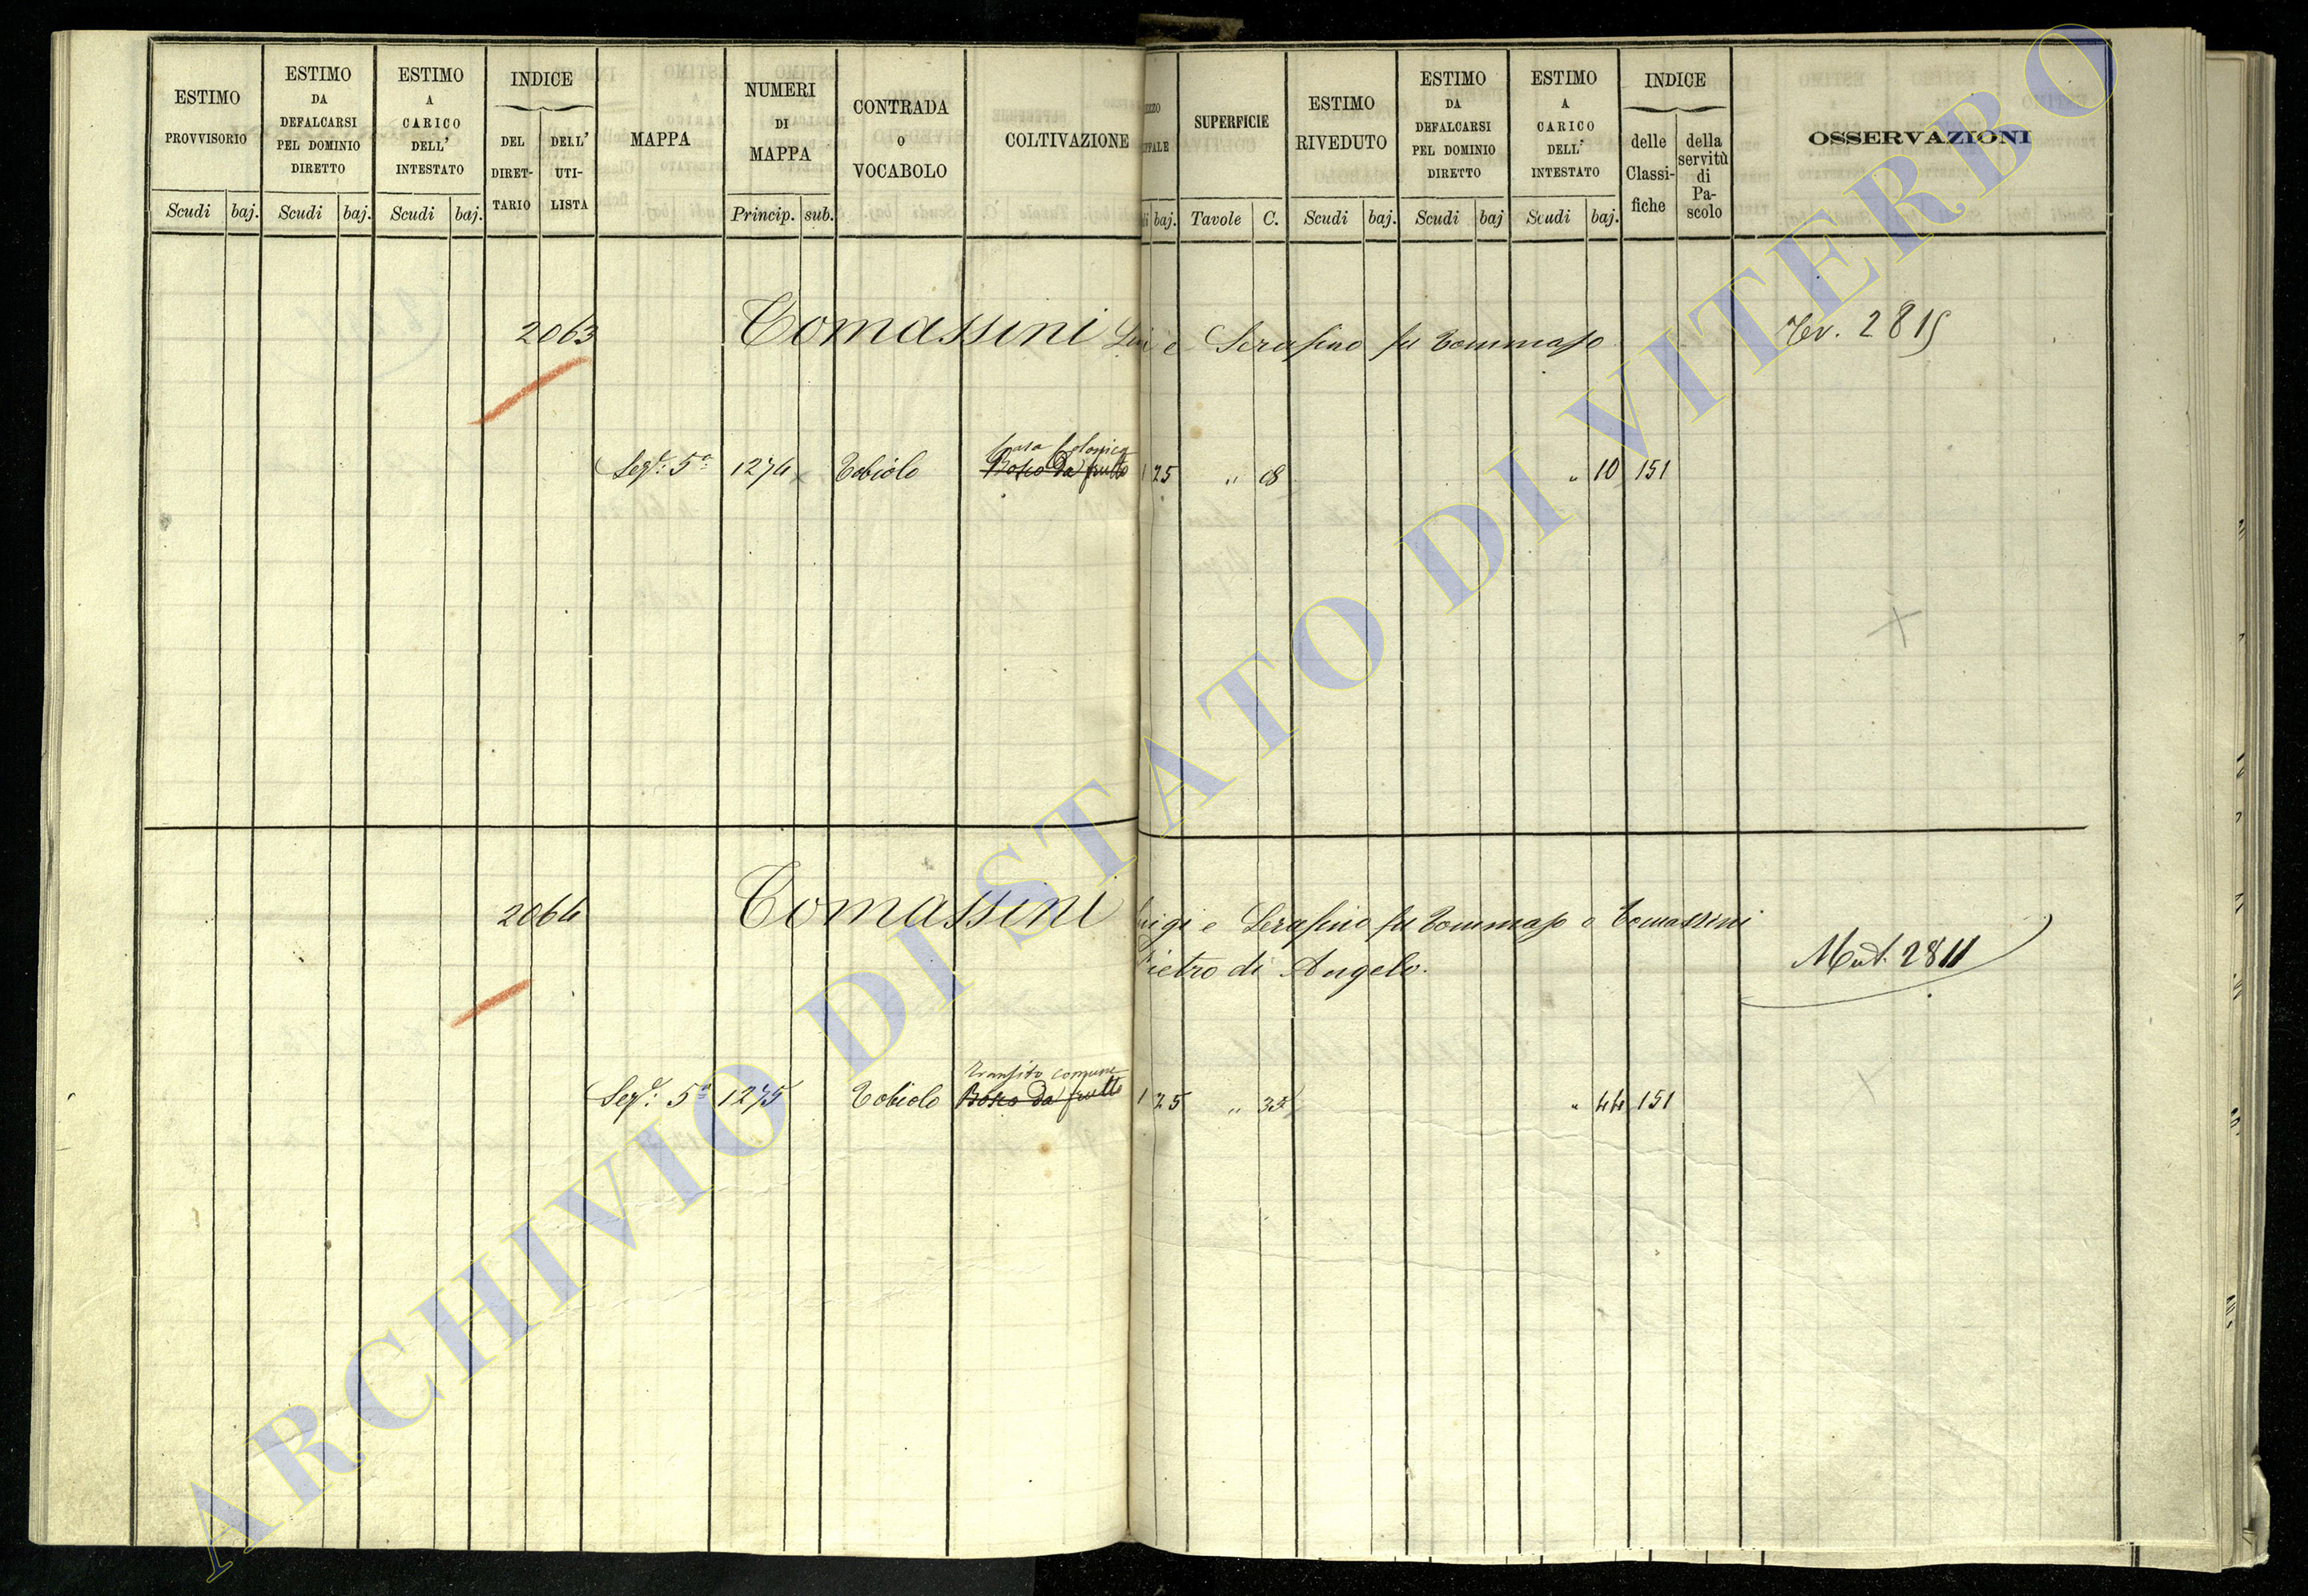 ESTIMO PROVVISORIO
Scudi baj.
ESTIMO DA DEFALCARSI PEL DOMINIO DIRETTO
Scudi baj.
ESTIMO A CARICO DELL' INTESTATO
Scudi baj.
INDICE
DEL DIRET- TARIO
DELL' UTI- LISTA
MAPPA
NUMERI DI MAPPA
Princip. sub.
CONTRADA o VOCABOLO
COLTIVAZIONE
baj.
SUPERFICIE
Tavole C.
ESTIMO RIVEDUTO
Scudi baj.
ESTIMO DA DEFALCARSI PEL DOMINIO DIRETTO
Scudi baj
ESTIMO A CARICO DELL' INTESTATO
Scudi baj.
INDICE
delle Classi- fiche
della servitù di Pa- scolo
OSSERVAZIONI
2063 Tomassini e Serafino fu Tommaso
Casa Colonica
Sez.e: 5a 1274 Tobiolo Bosco da frutto 1 25 " 08 " 10 151
2064 Tomassini Luigi e Serafino fu Tommaso e Tomassini
Pietro di Angelo.
Mut. 2811
Transito comune
Sez.e: 5a 1275 Tobiolo Bosco da frutto 1 25 " 35 " 44 151
ARCHIVIO DI STATO DI VITERBO